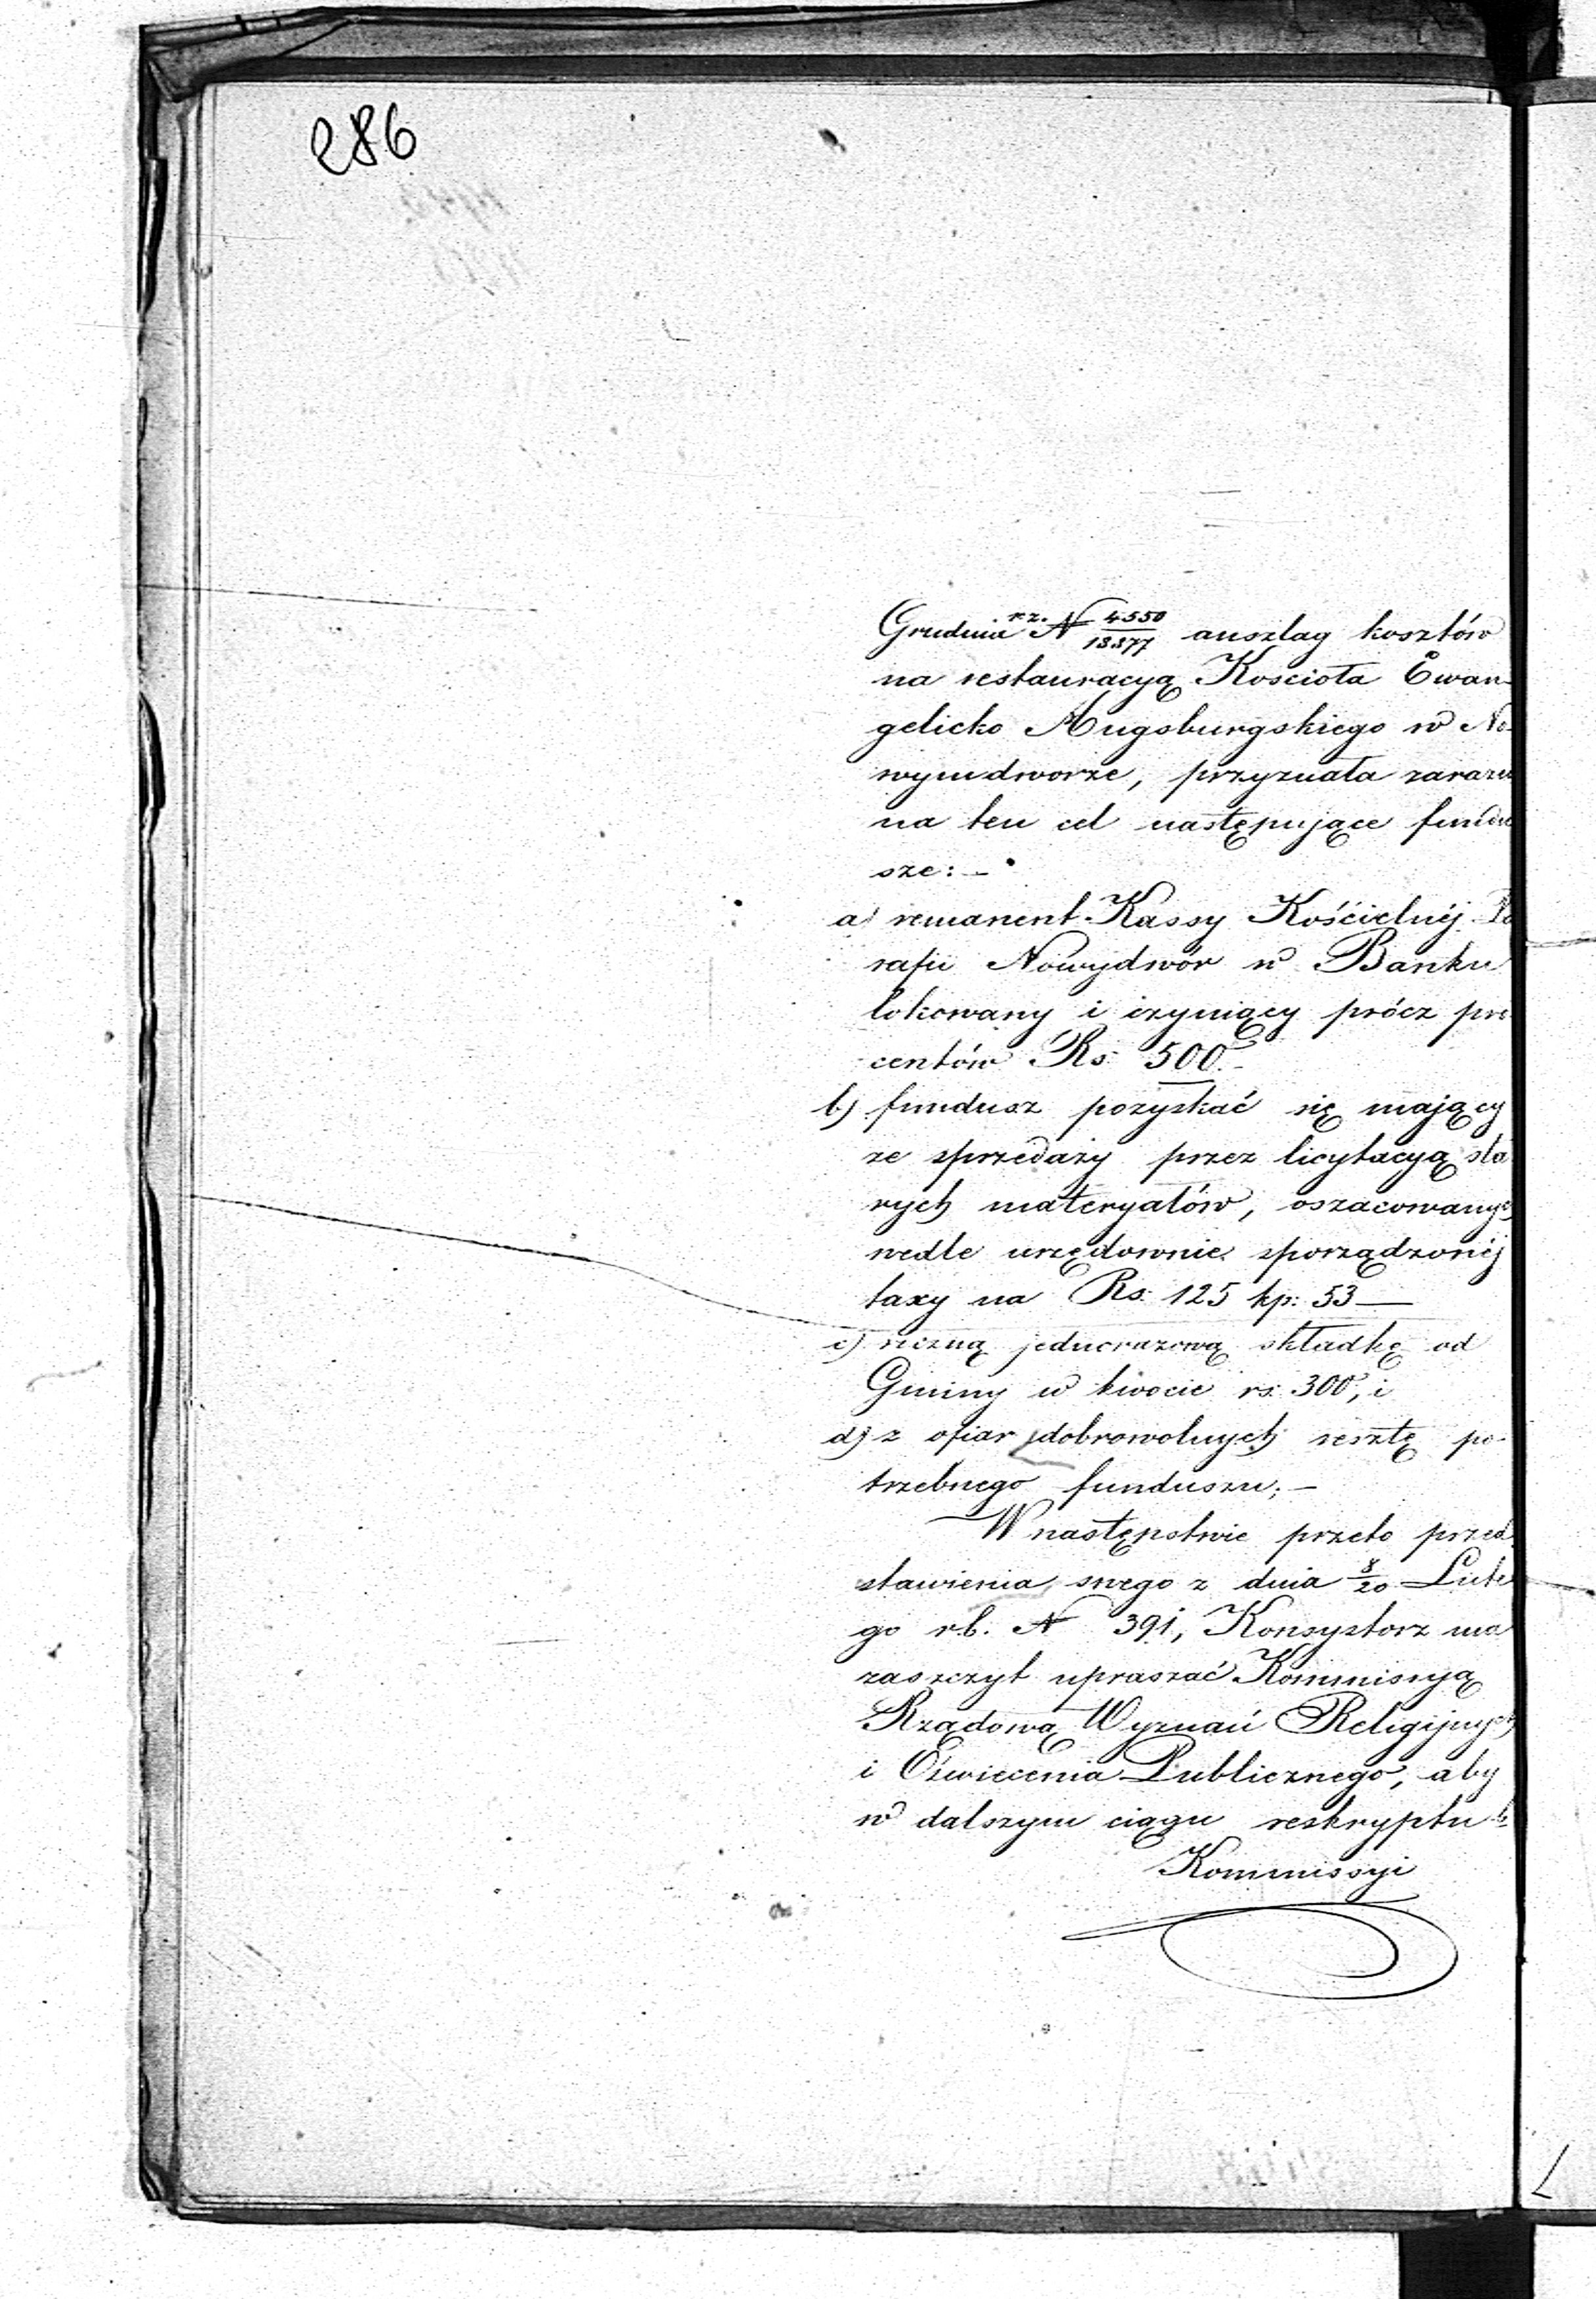 286
Grudnia r.z. N 4550/18377 anszlag kosztów
na restauracyą Kościoła Ewan-
gelicko Augsburgskiego w No-
wymdworze, przyznała zarazem
na ten cel następujące fundu
sze: -
a) remanent Kassy Kościelnéj Pa
rafii Nowydwór w Banku
lokowany i czyniący prócz pro
centów Rs 500.-
b) fundusz pozyskać się mający
ze sprzedaży przez licytacyą sta
rych materyałów, oszacowanych
wedle urzędownie sporządzonéj
taxy na Rs: 125 kp: 53 —
c) roczną jednorazową składkę od
Gminy w kwocie rs: 300, i
d) z ofiar dobrowolnych resztę po-
trzebnego funduszu; -
W następstwie przeto przed
stawienia swego z dnia 8/20 Lute
go r.b. N 391, Konsystorz ma
zaszczyt upraszać Kommissyą
Rządową Wyznań Religijnych
i Oświecenia Publicznego, aby
w dalszym ciągu reskryptu
Kommissyi